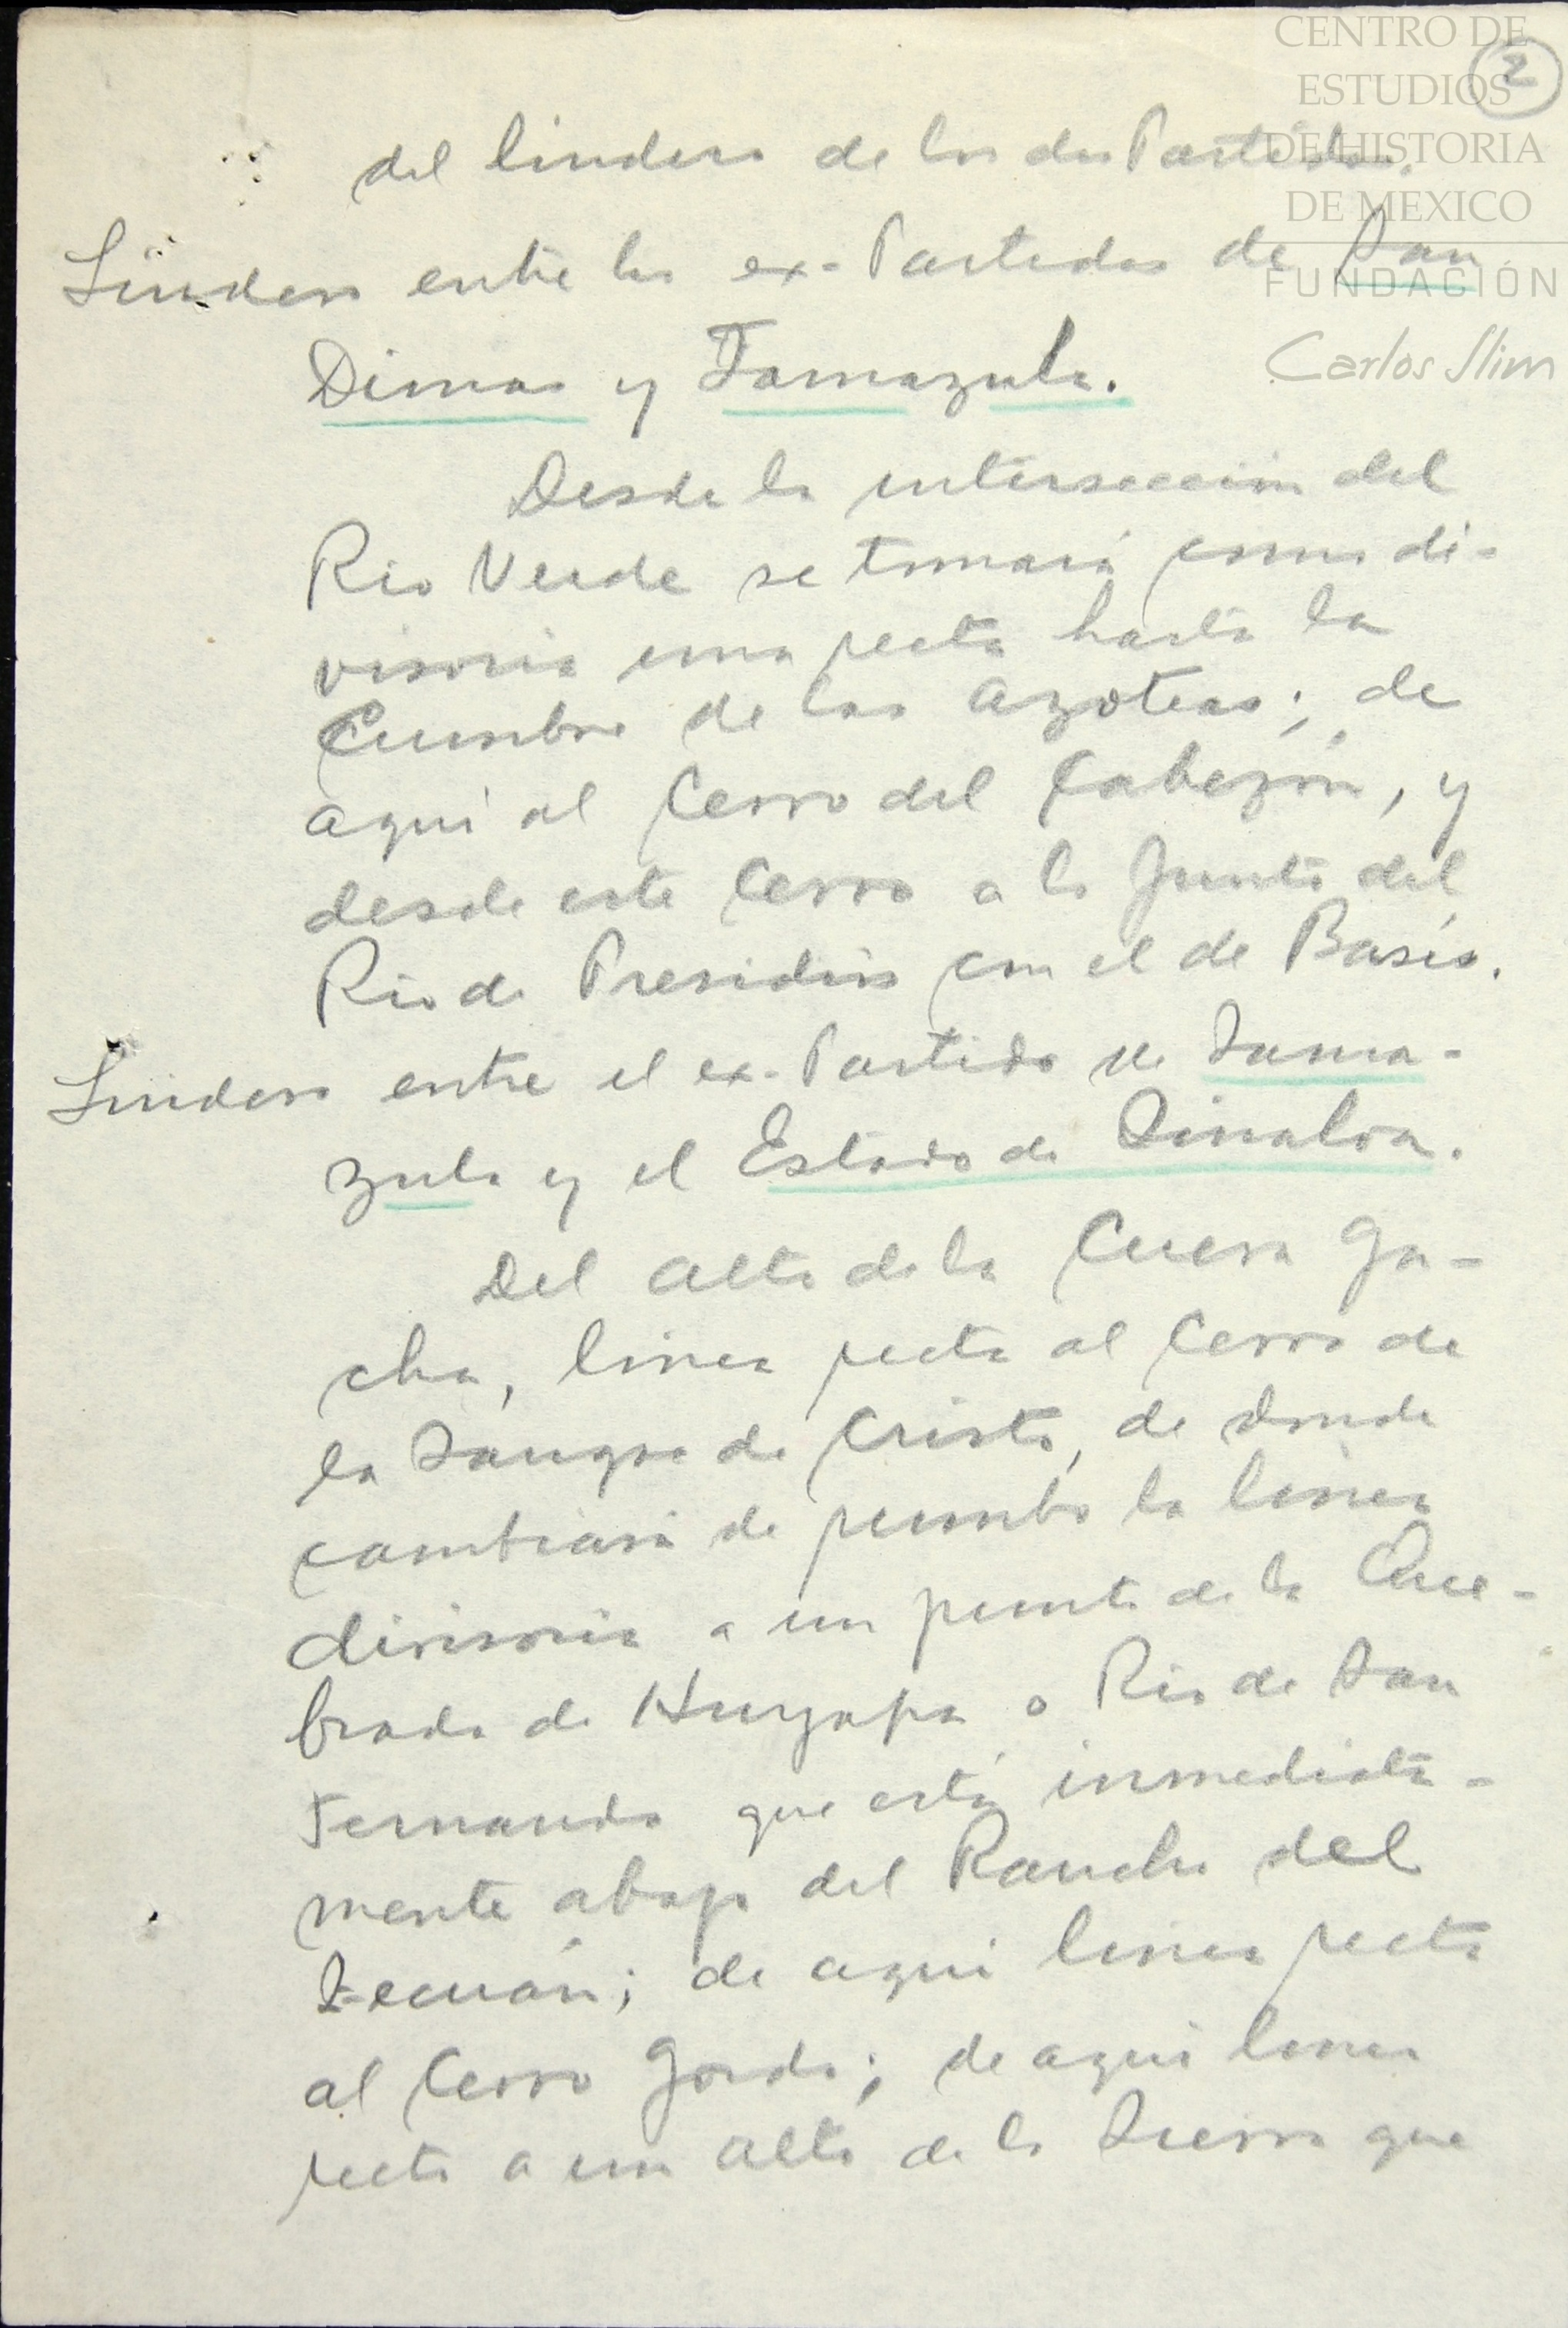 CENTRO DE
ESTUDIOS
DE HISTORIA
DE MEXICO
FUNDACIÓN
Carlos Slim
2
del lindero de los dos Partidos.
Lindero entre los ex-Partidos de San
Dimas y Tamazula.
Desde la intersección del
Rio Verde se tomará como di-
visoria una recta hasta la
Cumbre de las Azoteas; de
aquí al Cerro del Cabezón, y
desde este Cerro a la Junta del
Rio de Presidios con el de Basís.
Lindero entre el ex-Partido de Tama-
zula y el Estado de Sinaloa.
Del alto de la Cueva Ga-
cha, linea recta al Cerro de
la Sangre de Cristo, de donde
cambiará de rumbo la linea
divisoria a un punto de la Que-
brada de Huyapa o Rio de San
Fernando que está inmediata-
mente abajo del Rancho del
Tecuán; de aqui linea recta
al Cerro Gordo; de aqui linea
recta a un alto de la Sierra que